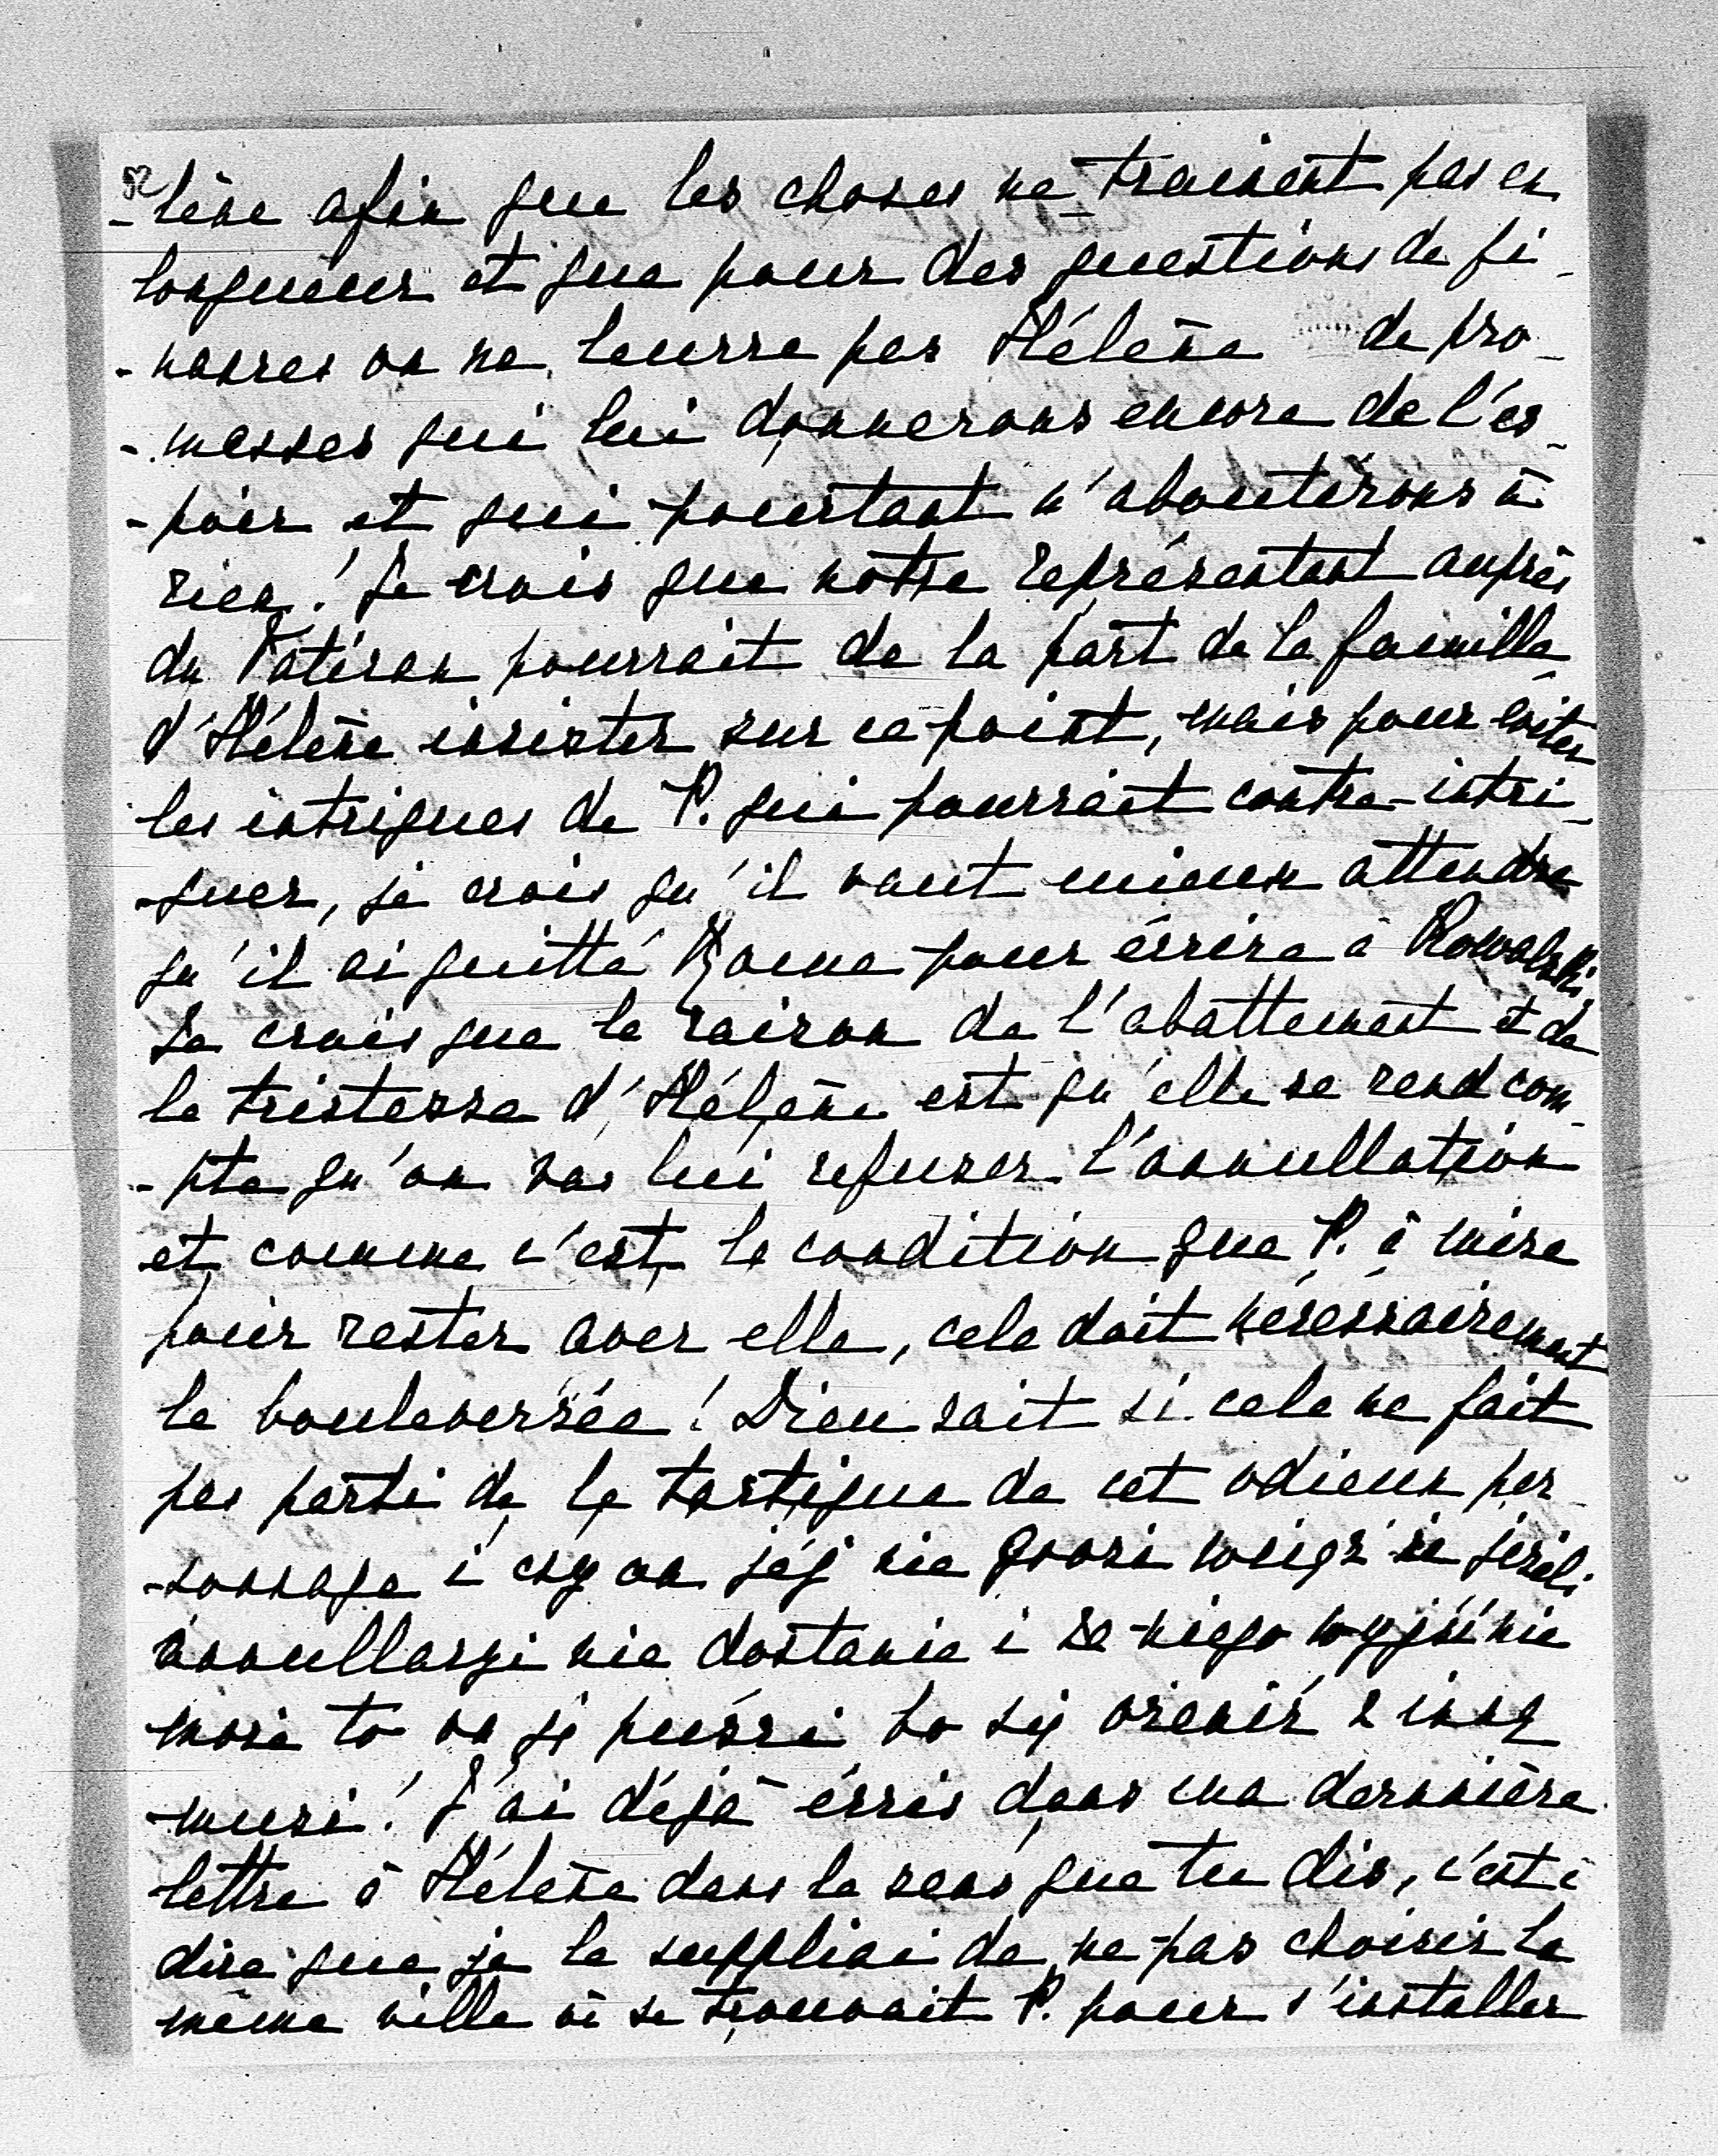 52
-lène afin que les choses ne trainent pas en
longueur et que pour des questions de fi-
-nances on ne leurre pas Hélène de pro-
-messes qui lui donnerons encore de l'es-
-poir et qui pourtant n'aboutirons à
rien! Je crois que notre représentant auprès
du Vatican pourrait de la part de la famille
d'Hélène insister sur ce point, mais pour éviter
les intrigues de P. qui pourrait contre-intri-
-guer, je crois qu'il vaut mieux attendre
qu'il ai quitté Rome pour écrire à Kowalski.
Je crois que la raison de l'abattement et de
la tristesse d'Hélène est qu'elle se rend com-
-pte qu'on vas lui refuser l'annullation
et comme c'est la condition que P. à mise
pour rester avec elle, cela doit nécéssairement
la bouleversée! Dieu sait si cela ne fait
pas parti de la tactique de cet odieux per-
-sonnage i czy on jej nie grozi że jeżeli
annullacyi nie dostanie i za niego wyjść nie
może to on ją puści bo się ożenić z inną
musi! J'ai déjà écris dans ma dernière
lettre à Hélène dans le sens que tu dis, c'est à
dire que je la suppliai de ne pas choisir la
même ville où se trouvait P. pour s'installer